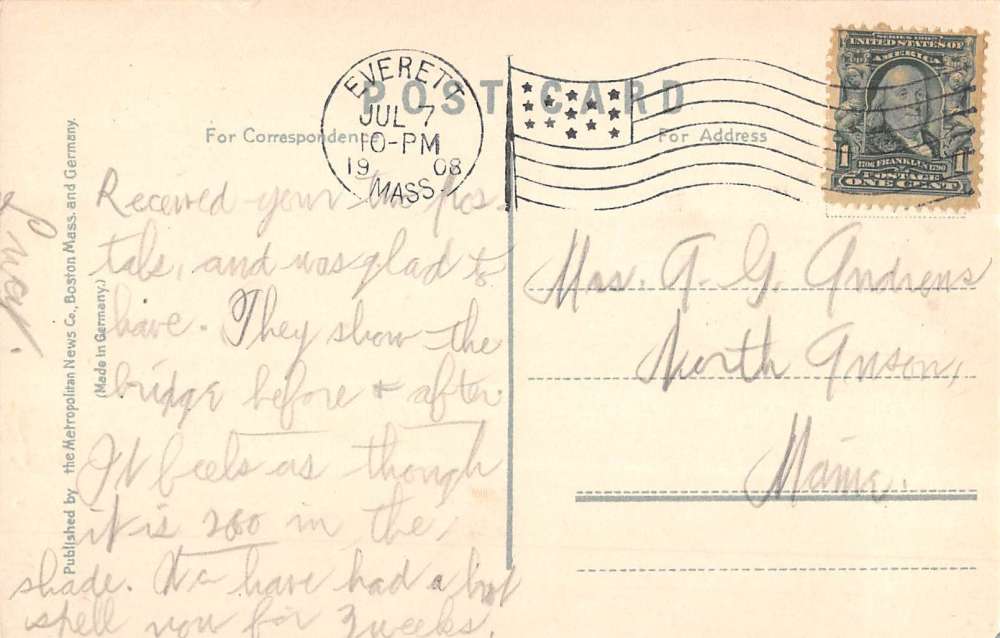 POST CARD
For Correspondence
For Address
EVERETT
JUL 7
10-PM
19 08
MASS.
SERIES 1902
UNITED STATES OF
AMERICA
1706 FRANKLIN 1790
1 1
POSTAGE
ONE CENT
Published by the Metropolitan News Co., Boston Mass. and Germany.
(Made in Germany.)
Received your two pos-
tals, and was glad to
have. They show the
bridge before & after.
It feels as though
it is 200 in the
shade. We have had a hot
spell now for 3 weeks.
Mrs. A. G. Andrews
North Anson,
Maine.